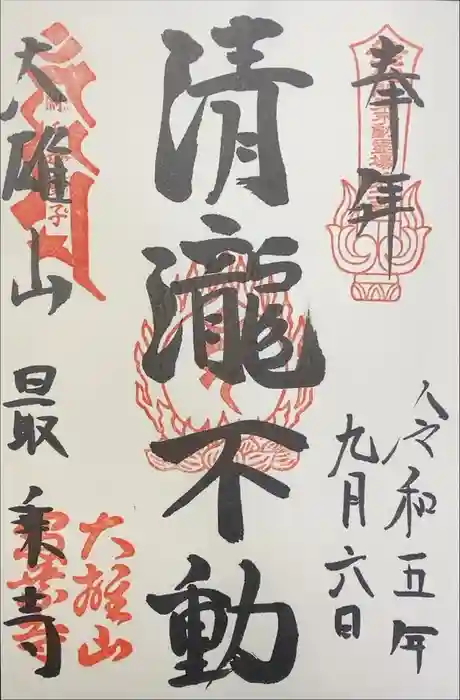 奉拝
令和五年
九月六日
清瀧不動
大雄山
最乗寺
大雄山
最乗寺